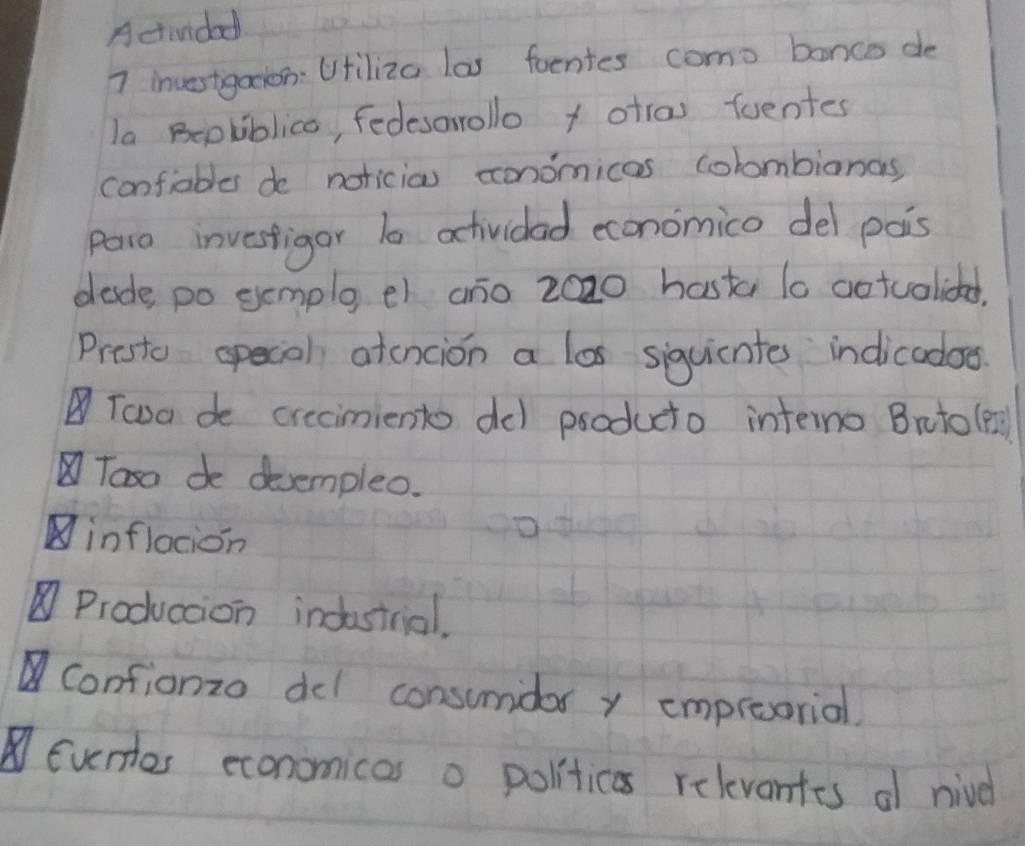 Actividad
1 investigación: Utiliza las fuentes como banco de
la República, Fedesarrollo y otras fuentes
confiables de noticias económicas colombianas,
para investigar la actividad económico del país
desde, po ejemplo, el año 2020 hasta la actualidad.
Presta special atención a los siguientes indicados.
Tasa de crecimiento del producto interno Bruto (PIB)
Tasa de desempleo.
inflación
Producción industrial.
Confianza del consumidor y empresarial.
Eventos económicas o políticas relevantes al nivel